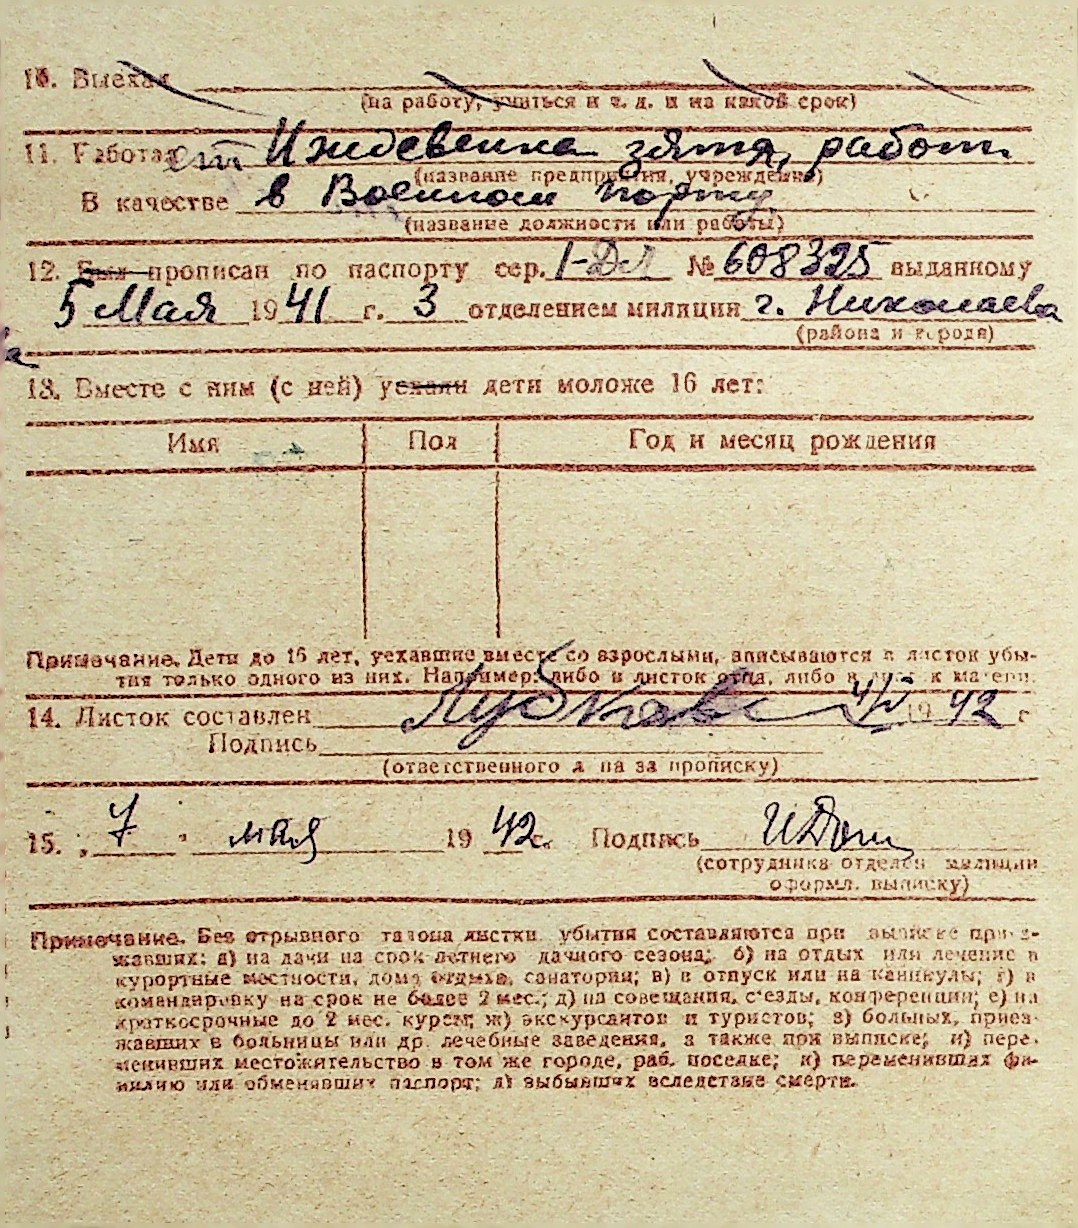 10. Выехал
(на работу, учиться и т. д. и на какой срок)
11. Работает Иждевенка зятя, работ.
(название предприятия, учреждения)
В качестве в Военном порту
(название должности или работы)
12. Был прописан по паспорту сер. I-ДЛ № 608325 выданному
5 Мая 1941 г. 3 отделением милиции г. Николаева
(района и города)
13. Вместе с ним (с ней) уехали дети моложе 16 лет:
Имя Пол Год и месяц рождения
Примечание. Дети до 16 лет, уехавшие вместе со взрослыми, вписываются в листок убы-
тия только одного из них. Например: либо в листок отца, либо в лист к матери.
14. Листок составлен 1942 г
Подпись
(ответственного л па за прописку)
15. „7" мая 1942 г. Подпись
(сотрудника отделен милиции
оформл. выписку)
Примечание. Без отрывного талона листки убытия составляются при выписке приез-
жавших: а) на дачи на срок летнего дачного сезона; б) на отдых или лечение в
курортные местности, дома отдыха, санатории; в) в отпуск или на каникулы; г) в
командировку на срок не более 2 мес.; д) на совещания, с'езды, конференции; е) на
краткосрочные до 2 мес. курсы; ж) экскурсантов и туристов; з) больных, приез-
жавших в больницы или др. лечебные заведения, а также при выписке; и) пере-
менивших местожительство в том же городе, раб. поселке; к) переменивших фа-
милию или обменявших паспорт; л) выбывших вследствие смерти.